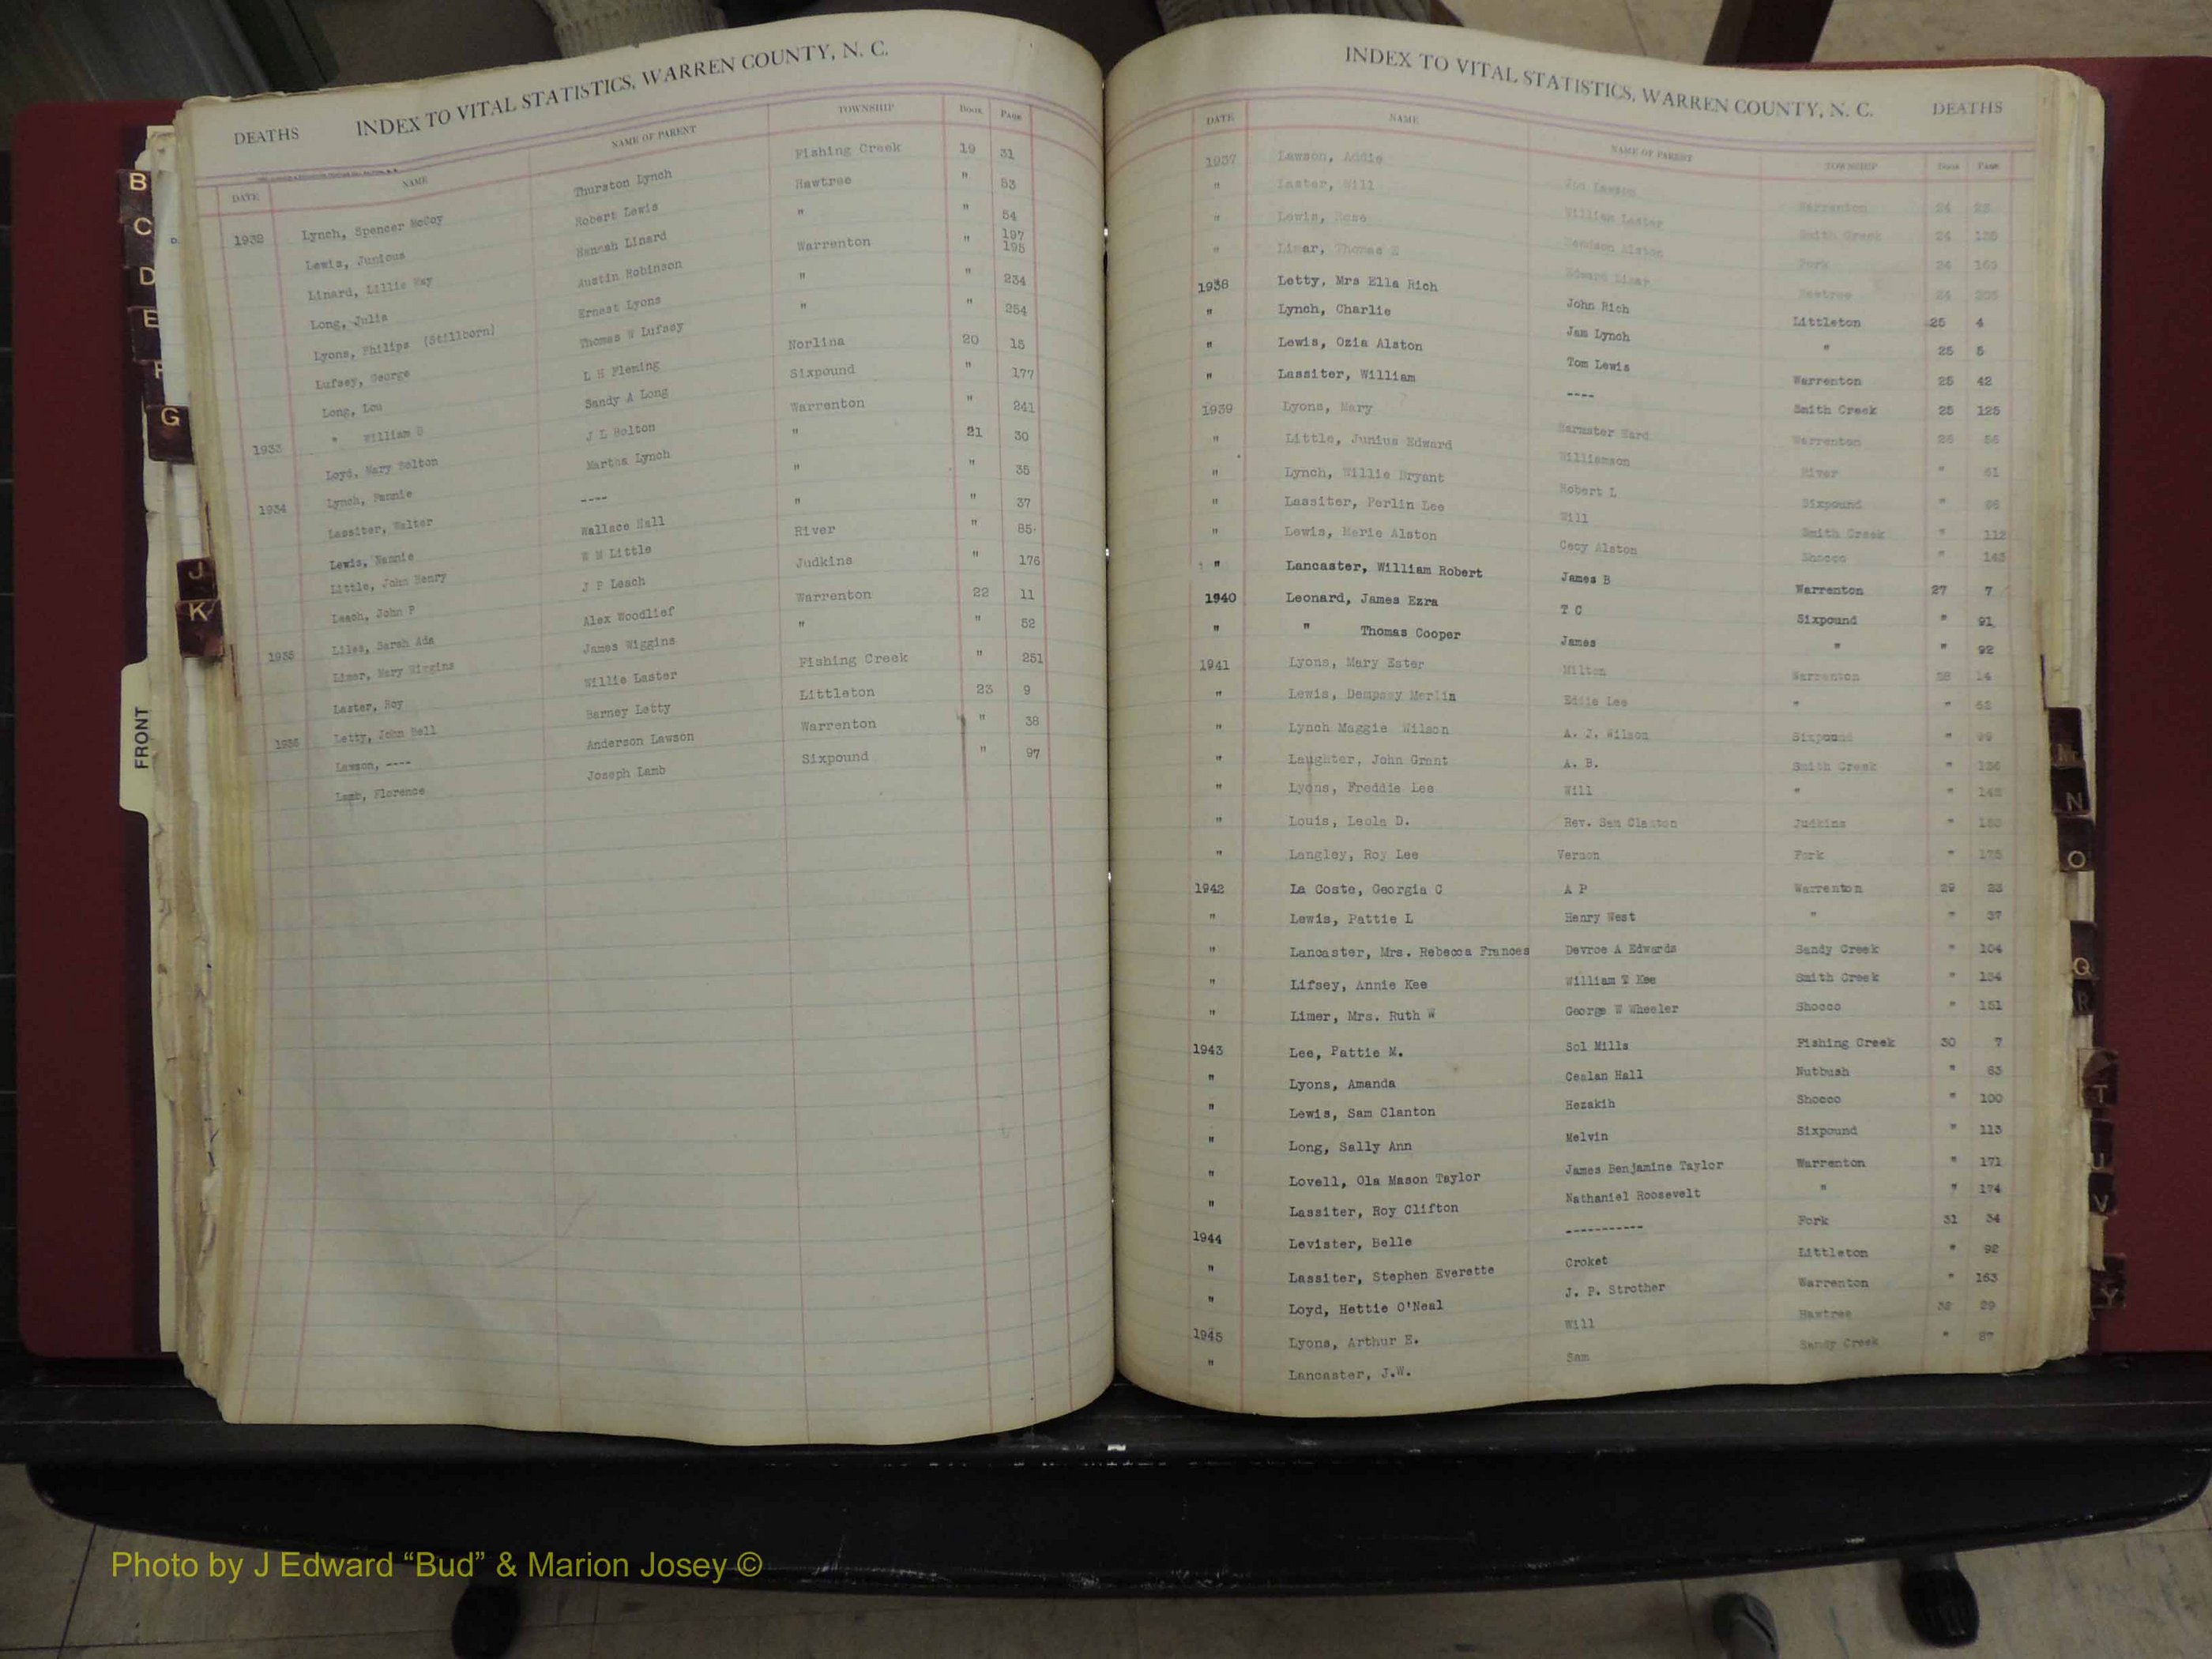 DEATHS INDEX TO VITAL STATISTICS, WARREN COUNTY, N. C.
DATE NAME NAME OF PARENT TOWNSHIP Book Page
1932 Lynch, Spencer McCoy Thurston Lynch Fishing Creek 19 31
Lewis, Junious Robert Lewis Hawtree " 53
Linard, Lillie May Hannah Linard " " 54
Long, Julia Austin Robinson Warrenton " 197
195
Lyons, Philips (Stillborn) Ernest Lyons " " 234
Lufsey, George Thomas W Lufsey " " 254
Long, Lou L H Fleming Norlina 20 15
1933 " William S Sandy A Long Sixpound " 177
Loyd, Mary Bolton J L Bolton Warrenton " 241
1934 Lynch, Fannie Martha Lynch " 21 30
Lassiter, Walter ---- " " 35
Lewis, Nannie Wallace Hall " " 37
Little, John Henry W M Little River " 85
Leach, John P J P Leach Judkins " 176
1935 Liles, Sarah Ada Alex Woodlief Warrenton 22 11
Limer, Mary Wiggins James Wiggins " " 52
Laster, Roy Willie Laster Fishing Creek " 251
1936 Letty, John Bell Barney Letty Littleton 23 9
Lawson, ---- Anderson Lawson Warrenton " 38
Lamb, Florence Joseph Lamb Sixpound " 97
INDEX TO VITAL STATISTICS, WARREN COUNTY, N. C. DEATHS
DATE NAME NAME OF PARENT TOWNSHIP Book Page
1937 Lawson, Addie Lawson Warrenton 24
" Laster, Will William Laster Smith Creek 24
" Lewis, Rose Alston Fork 24
" Limar, Thomas E Edward Limar Hawtree 24
1938 Letty, Mrs Ella Rich John Rich Littleton 25 4
" Lynch, Charlie Jam Lynch " 25 5
" Lewis, Ozia Alston Tom Lewis Warrenton 25 42
" Lassiter, William ---- Smith Creek 25 125
1939 Lyons, Mary Ward Warrenton 26 56
" Little, Junius Edward Williamson River " 61
" Lynch, Willie Bryant Robert L Sixpound " 96
" Lassiter, Perlin Lee Will Smith Creek " 112
" Lewis, Marie Alston Cecy Alston Shocco " 143
" Lancaster, William Robert James B Warrenton 27 7
1940 Leonard, James Ezra T C Sixpound " 91
" " Thomas Cooper James " " 92
1941 Lyons, Mary Ester Milton Warrenton 28 14
" Lewis, Dempsey Merlin Eddie Lee " " 62
" Lynch Maggie Wilson A. J. Wilson Sixpound "
" Laughter, John Grant A. B. Smith Creek "
" Lyons, Freddie Lee Will " "
" Louis, Leola D. Rev. Sam Clanton Judkins "
" Langley, Roy Lee Vernon Fork " 175
1942 La Coste, Georgia C A P Warrenton 29 23
" Lewis, Pattie L Henry West " " 37
" Lancaster, Mrs. Rebecca Frances Devroe A Edwards Sandy Creek " 104
" Lifsey, Annie Kee William T Kee Smith Creek " 134
" Limer, Mrs. Ruth W George W Wheeler Shocco " 151
1943 Lee, Pattie M. Sol Mills Fishing Creek 30 7
" Lyons, Amanda Cealan Hall Nutbush " 63
" Lewis, Sam Clanton Hezakih Shocco " 100
" Long, Sally Ann Melvin Sixpound " 113
" Lovell, Ola Mason Taylor James Benjamine Taylor Warrenton " 171
" Lassiter, Roy Clifton Nathaniel Roosevelt " " 174
1944 Levister, Belle ----------- Fork 31 34
" Lassiter, Stephen Everette Croket Littleton " 92
" Loyd, Hettie O'Neal J. P. Strother Warrenton " 163
1945 Lyons, Arthur E. Will Hawtree 32 29
" Lancaster, J.W. Sam Sandy Creek " 87
B
C
D
E
F
G
J
K
FRONT
M
N
O
Q
R
T
U
V
Y
Photo by J Edward “Bud” & Marion Josey ©